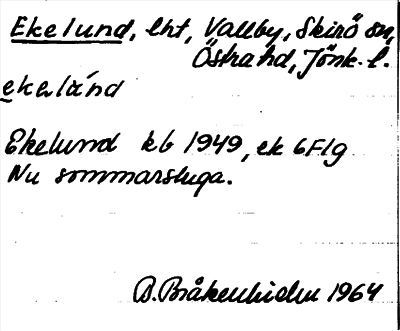 Ekelund, lht, Vallby, Skirö sn,
Östra hd, Jönk. l.
ekelánd
Ekelund kb 1949, ek 6F1g
Nu sommarstuga.
B. Bråkenhielm 1964